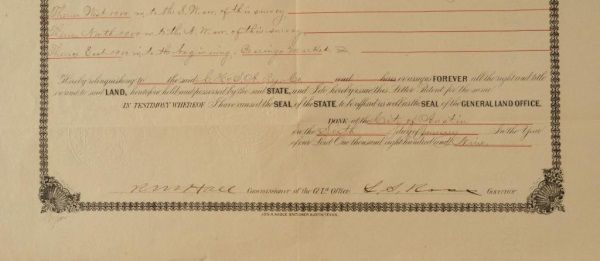 Thence West 1900 vrs to the S.W. cor. of this survey
Thence North 1900 vrs to the N.W. cor. of this survey
Thence East 1900 vrs to the beginning. Bearings marked
Hereby relinquishing to the said and his or assigns FOREVER all the right and title
in and to said LAND, heretofore held and possessed by the said STATE, and I do hereby issue this Letter Patent for the same
IN TESTIMONY WHEREOF I have caused the SEAL of the STATE, to be affixed as well as the SEAL of the GENERAL LAND OFFICE.
DONE at the City of Austin
on the Sixth day of January In the Year
of our Lord One thousand eight hundred and
R M Hall Commissioner of the G'l L'd Office L. S. Ross Governor